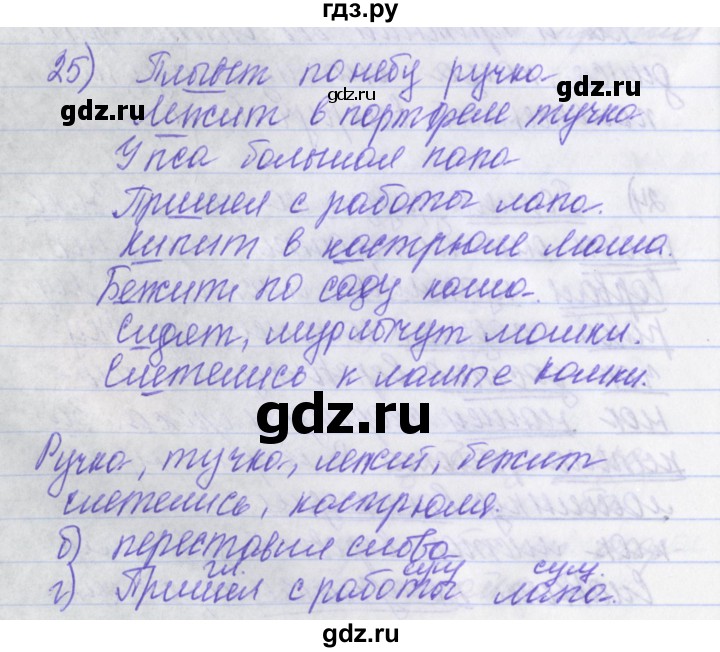 гдз.ру
25) Плывёт по небу ручка
gdz.ru gdz.ru gdz.ru
Лежит в портфеле тучка
У пса большая папа
Пришел с работы лапа.
Кипит в кастрюле Маша.
Бежит по саду каша.
Сидят, мурлычут мошки.
Слетелись к лампе кошки.
gdz.ru
Ручка, тучка, лежит, бежит
слетелись, кастрюля.
б) переставил слова
гл. сущ сущ.
г) Пришел с работы лапа.
gdz.ru